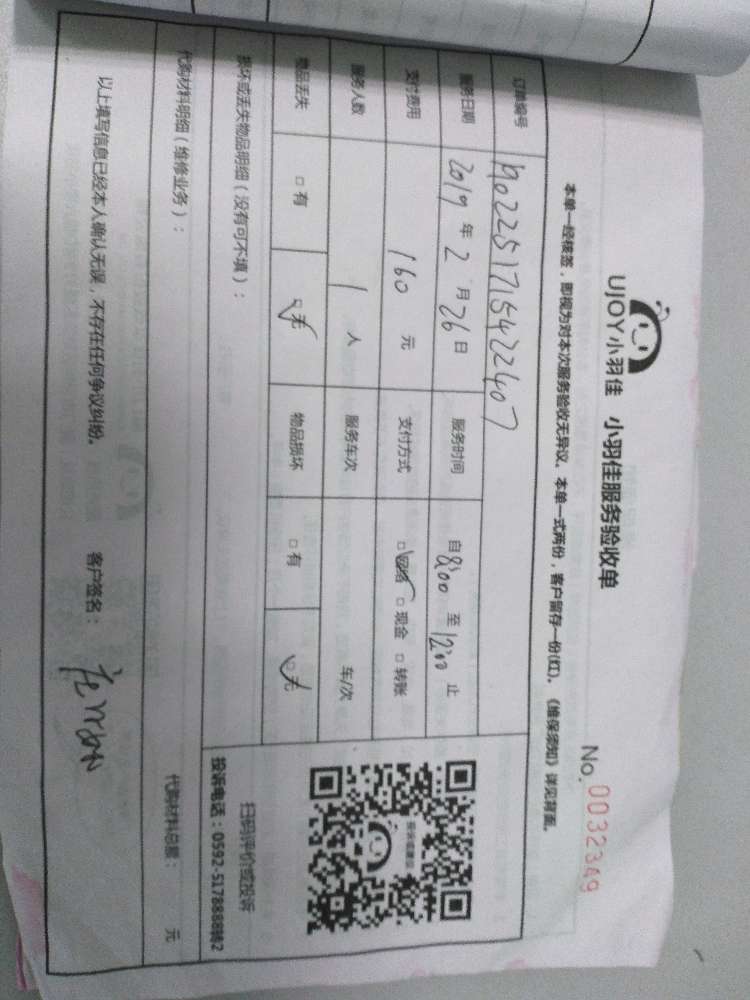 UJOY小羽佳 小羽佳服务验收单
No. 0032349
本单一经核签，即视为对本次服务验收无异议。本单一式两份，客户留存一份(红)。《维保须知》详见背面。
订单编号
服务日期 2019 年 2 月 26 日 服务时间 自 8:00 至 12:00 止
支付费用 160 元 支付方式 □网络 □现金 □转账
服务人数 1 人 服务车次 车/次
物品丢失 □有 □无 物品损坏 □有 □无
损坏或丢失物品明细（没有可不填）：
投诉或建议
扫码评价或投诉
投诉电话：0592-5178888转2
代购材料明细（维修业务）：
代购材料总额： 元
以上填写信息已经本人确认无误，不存在任何争议纠纷。 客户签名：